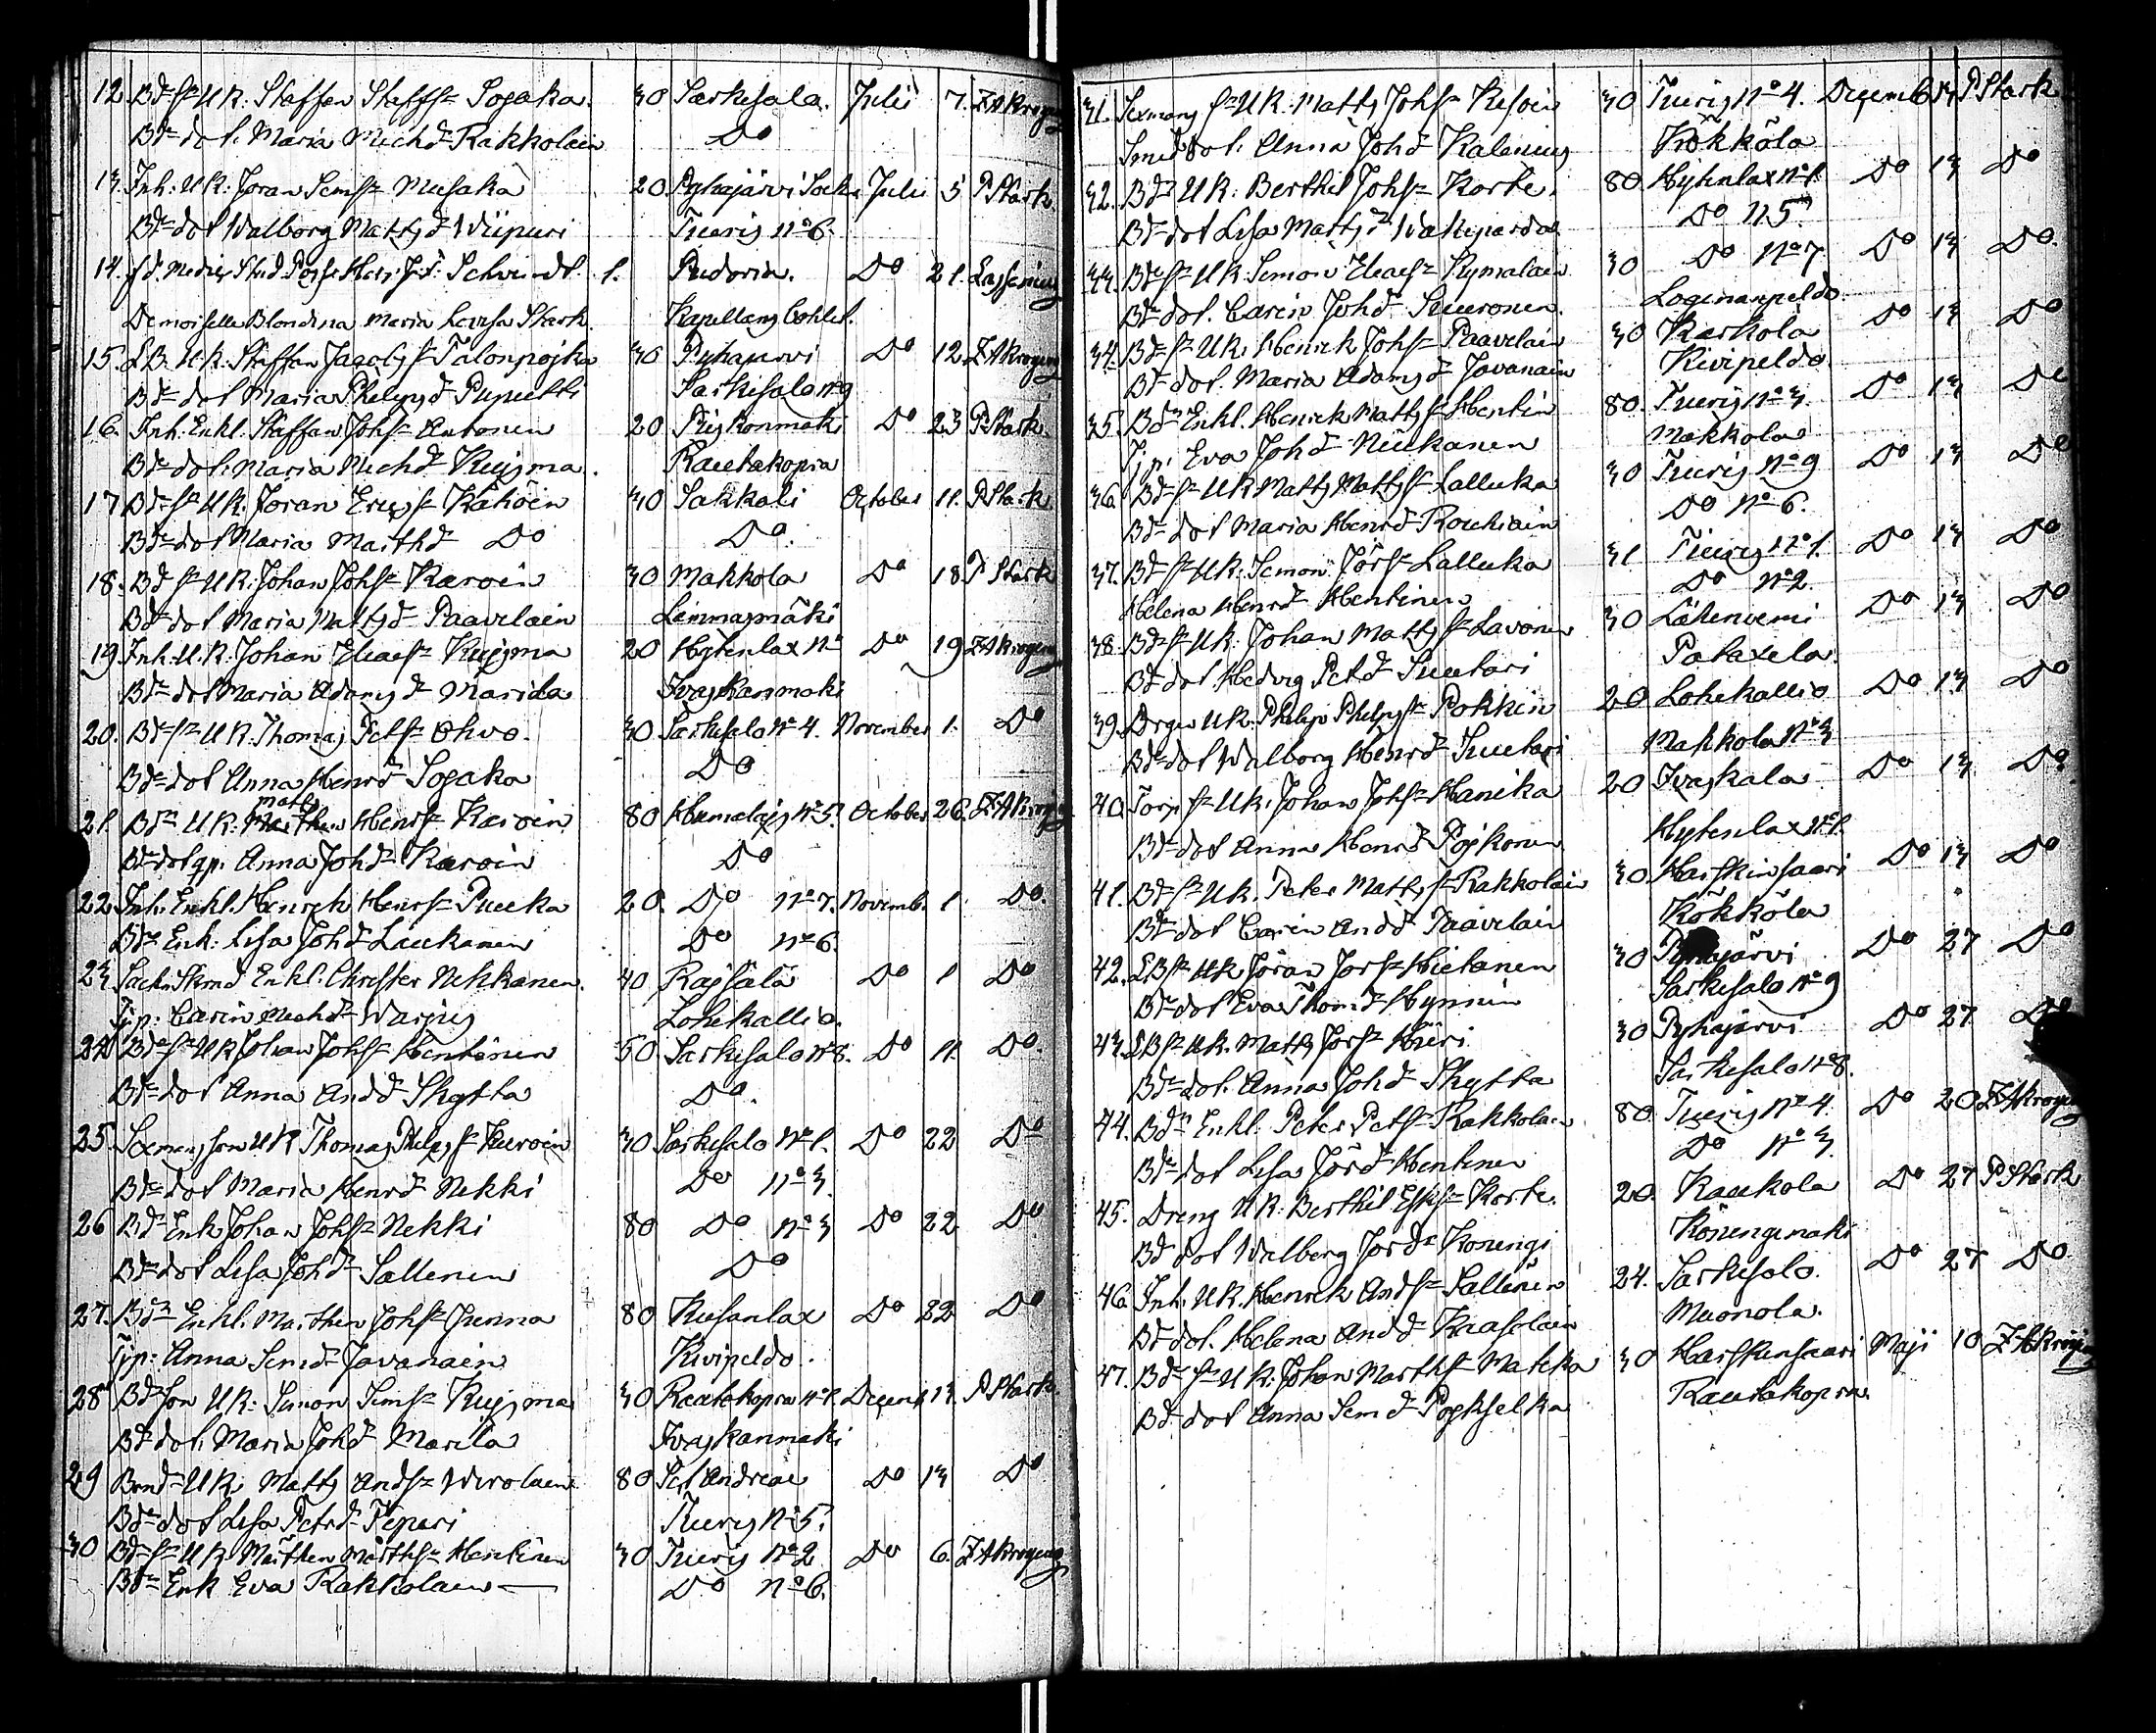 12. Bde sn UK: Staffan Staffsn Sopaka. 30 Sarkisala. Julii 7. ZAKrogerg
Bde dot. Maria Michd Rakkolain Do
13. Inh: UK: Joran Simsn Musaka 20. Pyhajärvi Sock. Julii 5 PStark.
Bde dot Walborg Mattsd Wiipuri Tiuris No 6.
14. Schvindt. 1. Do 21.
Demoiselle Blondina Maria Lovisa Stark. Kapellans
15. LB. UK. Staffan Jacobs sn Talonpojka 30 Pyhajarvi Do 12. ZAKrogerg
Bde dot Maria Phelps d Puputti Sarkisalo No 9
16. Inh. Enkl. Staffan Johsn Antonen 20 Do 23 PStark.
Bde dot. Maria Michd Kuisma. Rautakopra
17 Bde sn UK. Joran Ericssn Kähöin 30 Sakkali October 11. PStark.
Bde dot Maria Marthd Do Do.
18. Bd sn UK: Johan Johsn Karvin 30 Makkola Do 18 PStark
Bde dot Maria Mattsd Paavelain Linnasmäki
19 Inh. UK. Johan Eliaesn Kuisma 20 Hytinlax No Do 19 ZAKrogerg
Bde dot Maria Adams d Marila Ivaskanmaki
20. Bde sn UK. Thomas Petsn Ohvo. 30 Sarkisalo No 4. November 1. Do
Bde dot Anna Henrd Sopaka Do
Matts
21. Bdn UK. Marthen Henrsn Karvin 80 Hiumalajs No 5. October 26. ZAKrogerg
Bde dot qp. Anna Johd Karvin Do
22 Inh. Enkl. Henrich Henrsn Pukka 20. Do No 7. Novemb. 1 Do.
Bde Enk: Lisa Johd Liukanen Do No 6.
23 Enkl: Christer Nekkanen. 40 Rajsälä Do 1 Do
Pjp: Carin Michd Warpus Lohikallio.
24 Bde sn UK Johan Johsn Hentinen 50 Sarkisalo No 8. Do 11. Do.
Bde dot Anna Andd Skytta Do.
25. Sexmans son UK Thomas Phelps sn Kurvin 30 Sarkisalo No 1. Do 22 Do
Bde dot Maria Henrd Nekki Do No 3.
26 Bde Enk Johan Johsn Nekki 80 Do No 3 Do 22 Do
Bde dot Lisa Johd Sallinen Do
27. Bdn Enkl. Marthen Johsn Junna 80 Kusanlax Do 22 Do
Pjp: Anna Simd Javanain Kivipeldo.
28 Bde Son UK: Simon Simsn Kuisma 30 Rautakopra No 1. Decemb 13. PStark
Bde dot. Maria Johd Marila Ivaskanmaki
29 Bond UK. Matts Andsn Wirolain 80 Sct Andreae Do 13 Do
Bde dot Lisa Petrd Pepari Tiuris No 5.
30 Bde sn UK. Marthen Marthsn Hentinen 30 Tiuris No 2 Do 6. ZAKrogerg
Bde Enk Eva Rakkolain Do No 6.
31. Sexmans sn UK. Matts Johsn Kesoin 30 Tiuris No 4. Decemb 13 PStark
Smed dot. Anna Johd Kalenius Kökköla
32. Bde UK. Berthil Johsn Korte. 80 Hytinlax No 1. Do 13 Do
Bde dot Lisa Mattsd Wakiparda Do No 5
33. Bde sn UK. Simon Eliaesn Kymalain 30 Do No 7 Do 13 Do.
Bde dot. Carin Johd Suuronen. Loginanpeldo
34. Bde sn UK. Henrich Johsn Paavelain 30 Karkola Do 13 Do
Bde dot. Maria Adams d Javanain Kivipeldo
35. Bdn Enkl. Henrich Matts sn Hentin 80. Tiuris No 3. Do 13 Do
Pjp. Eva Johd Niukanen Makkola
36. Bde sn UK Matts Matts sn Lalluka 30 Tiuris No 9 Do 13 Do
Bde dot Maria Henrd Rouhiain Do No 6.
37. Bde sn UK. Simon Jörsn Lalluka 31 Tiuris No 1. Do 13 Do
Helena Henrd Hentinen Do No 2
38. Bde sn UK. Johan Matts sn Lavonen 30 Lätenvemi Do 13 Do
Bde dot Hedvig Petd Suutari Pataxela.
39. Drgen UK. Philip Phelps sn Pokkin 20 Lohikallio Do 13 Do
Bde dot Walborg Henrd Suutari Makkola No 3
40. Torp sn UK. Johan Johsn Hanika 20 Ivaskala Do 13 Do
Bde dot Anna Henrd Pojkonen Hytinlax No 1.
41. Bde sn UK. Peter Matts sn Rakkolain 30. Harskinsaari Do 13 Do
Bde dot Carin Andd Paavelain Kökköla
42. LB sn UK Jöran Jorsn Hietanen 30 Pyhajärvi Do 27 Do
Bde dot Eva Thomd Hynnin Sarkisalo No 9
43. LB sn UK. Matts Jörsn Hieri 30 Pyhajärvi Do 27 Do
Bde dot. Anna Johd Skytta Sarkisalo No 8.
44. Bdn Enkl. Peter Petsn Rakkolain 80. Tiuris No 4 Do 20 ZAKrogerg
Bde dot Lisa Jörd Hentinen Do No 3
45. Dreng UK. Berthil Eskssn Korte. 20. Kaukola Do 27 PStark
Bde dot Walborg Jörd Konengi Könengimaki
46. Inh. UK. Henrich Andsn Sallinen 24. Sarkisalo. Do 27 Do
Bde dot. Helena Andd Kaasolain Muonola.
47. Bde sn UK. Johan Marthsn Matikka 30 Harskinsaari Maji 10 ZAKrogerg
Bde dot Anna Simd Poghselka Rautakopra